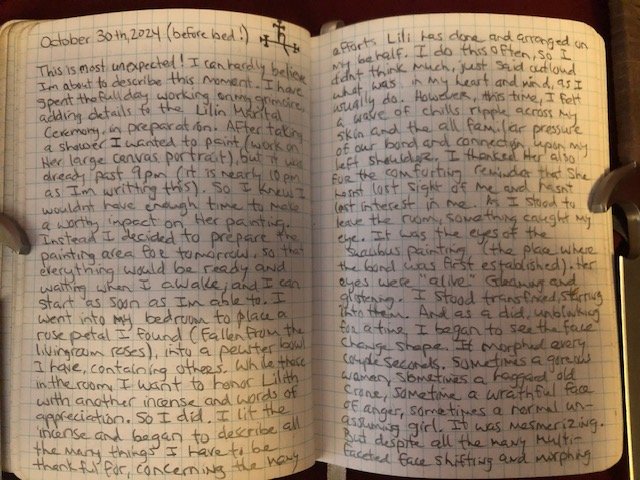 October 30th, 2024 (before bed!)
This is most unexpected! I can hardly believe
Im about to describe this moment. I have
spent the full day working on my grimoire,
adding details to the Lilin Marital
Ceremony, in preparation. After taking
a shower I wanted to paint (work on
Her large canvas portrait), but it was
already past 9pm (it is nearly 10pm
as Im writting this). So I knew I
wouldnt have enough time to make
a worthy impact on Her painting.
Instead I decided to prepare the
painting area for tomorrow, so that
everything would be ready and
waiting when I awake, and I can
start as soon as Im able to. I
went into my bedroom to place a
rose petal I found (fallen from the
livingroom roses), into a pewter bowl
I have, containing others. While there
in the room, I want to honor Lilith
with another incense and words of
appreciation. So I did. I lit the
incense and began to describe all
the many things I have to be
thankful for, concerning the many
efforts Lili has done and arranged on
my behalf. I do this often, so I
didnt think much, just said outloud
what was in my heart and mind, as I
usually do. However, this time, I felt
a wave of chills ripple across my
skin and the all familiar pressure
of our bond and connection, upon my
left shoulder. I thanked Her also
for the comforting reminder that She
hasnt lost sight of me and hasnt
lost interest in me. As I stood to
leave the room, something caught my
eye. It was the eyes of the
Succubus painting (the place where
the bond was first established). Her
eyes were "alive." Gleaming and
glistening. I stood transfixed, staring
into them. And as a did, unblinking
for a time, I began to see the face
change shape. It morphed every
couple seconds. Sometimes a gorgeous
women, sometimes a haggard old
crone, sometime a wrathful face
of anger, sometimes a normal un-
assuming girl. It was mesmerizing.
But despite all the many multi-
faceted face shifting and morphing